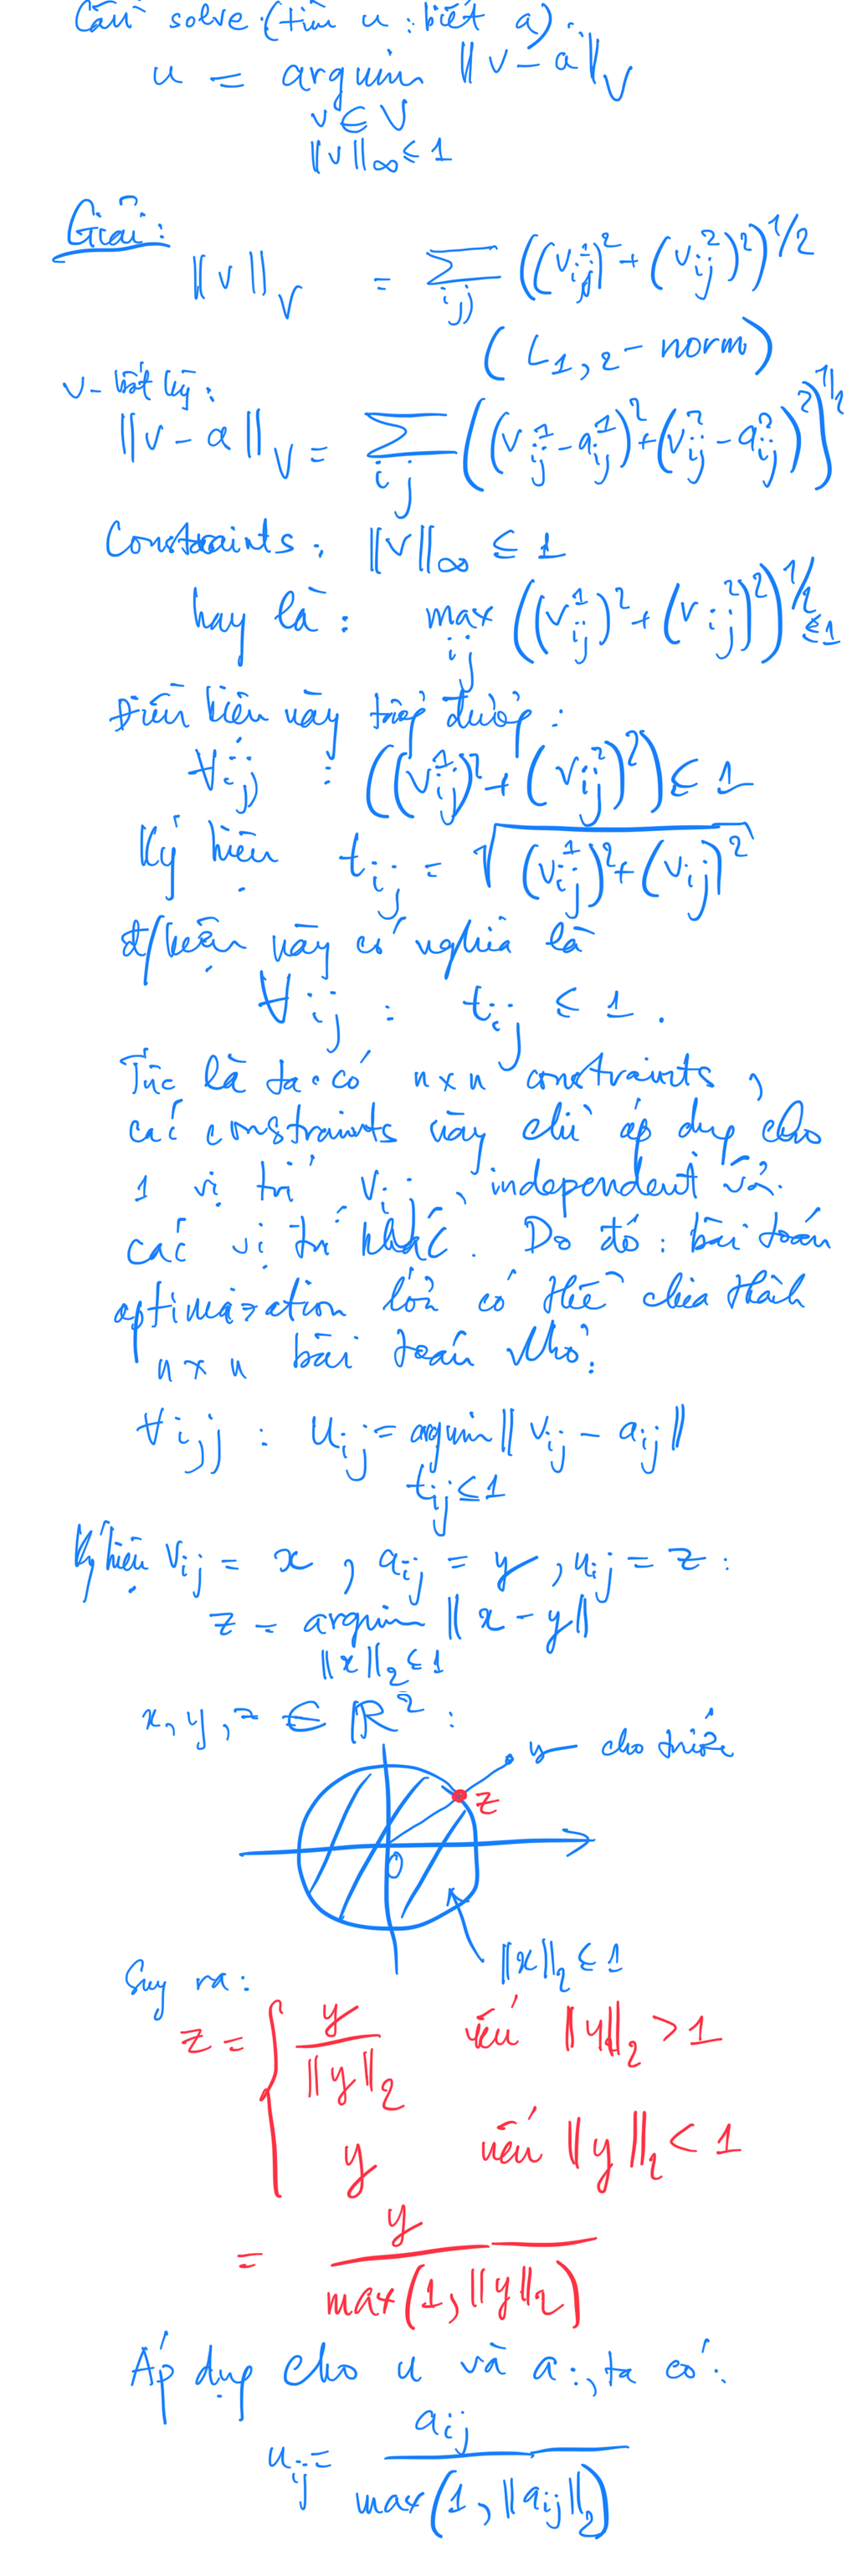 Cần solve (tìm u : biết a) :
u = argmin ‖v − a‖_V
v ∈ V
‖v‖_∞ ≤ 1
Giải :
‖v‖_V = ∑_{ij} ((v_{ij}^1)^2 + (v_{ij}^2)^2)^{1/2}
( L_{1,2} − norm )
v − bất kỳ :
‖v − a‖_V = ∑_{ij} ((v_{ij}^1 − a_{ij}^1)^2 + (v_{ij}^2 − a_{ij}^2)^2)^{1/2}
Constraints : ‖v‖_∞ ≤ 1
hay là : max_{ij} ((v_{ij}^1)^2 + (v_{ij}^2)^2)^{1/2} ≤ 1
Điều kiện này tương đương :
∀ij : ((v_{ij}^1)^2 + (v_{ij}^2)^2) ≤ 1
Ký hiệu t_{ij} = √((v_{ij}^1)^2 + (v_{ij})^2)
đ/kiện này có nghĩa là
∀ij : t_{ij} ≤ 1 .
Tức là ta có n x n constraints ,
các constraints này chỉ áp dụng cho
1 vị trí v_{ij} , independent với
các vị trí khác . Do đó : bài toán
optimization lớn có thể chia thành
n x n bài toán nhỏ :
∀ij : u_{ij} = argmin ‖v_{ij} − a_{ij}‖
t_{ij} ≤ 1
Ký hiệu v_{ij} = x , a_{ij} = y , u_{ij} = z :
z = argmin ‖x − y‖
‖x‖_2 ≤ 1
x, y, z ∈ ℝ^2 :
y cho trước
z
0
‖x‖_2 ≤ 1
Suy ra :
z = { y / ‖y‖_2 nếu ‖y‖_2 > 1
y nếu ‖y‖_2 < 1
= y / max(1, ‖y‖_2)
Áp dụng cho u và a : , ta có :
u_{ij} = a_{ij} / max(1, ‖a_{ij}‖_2)